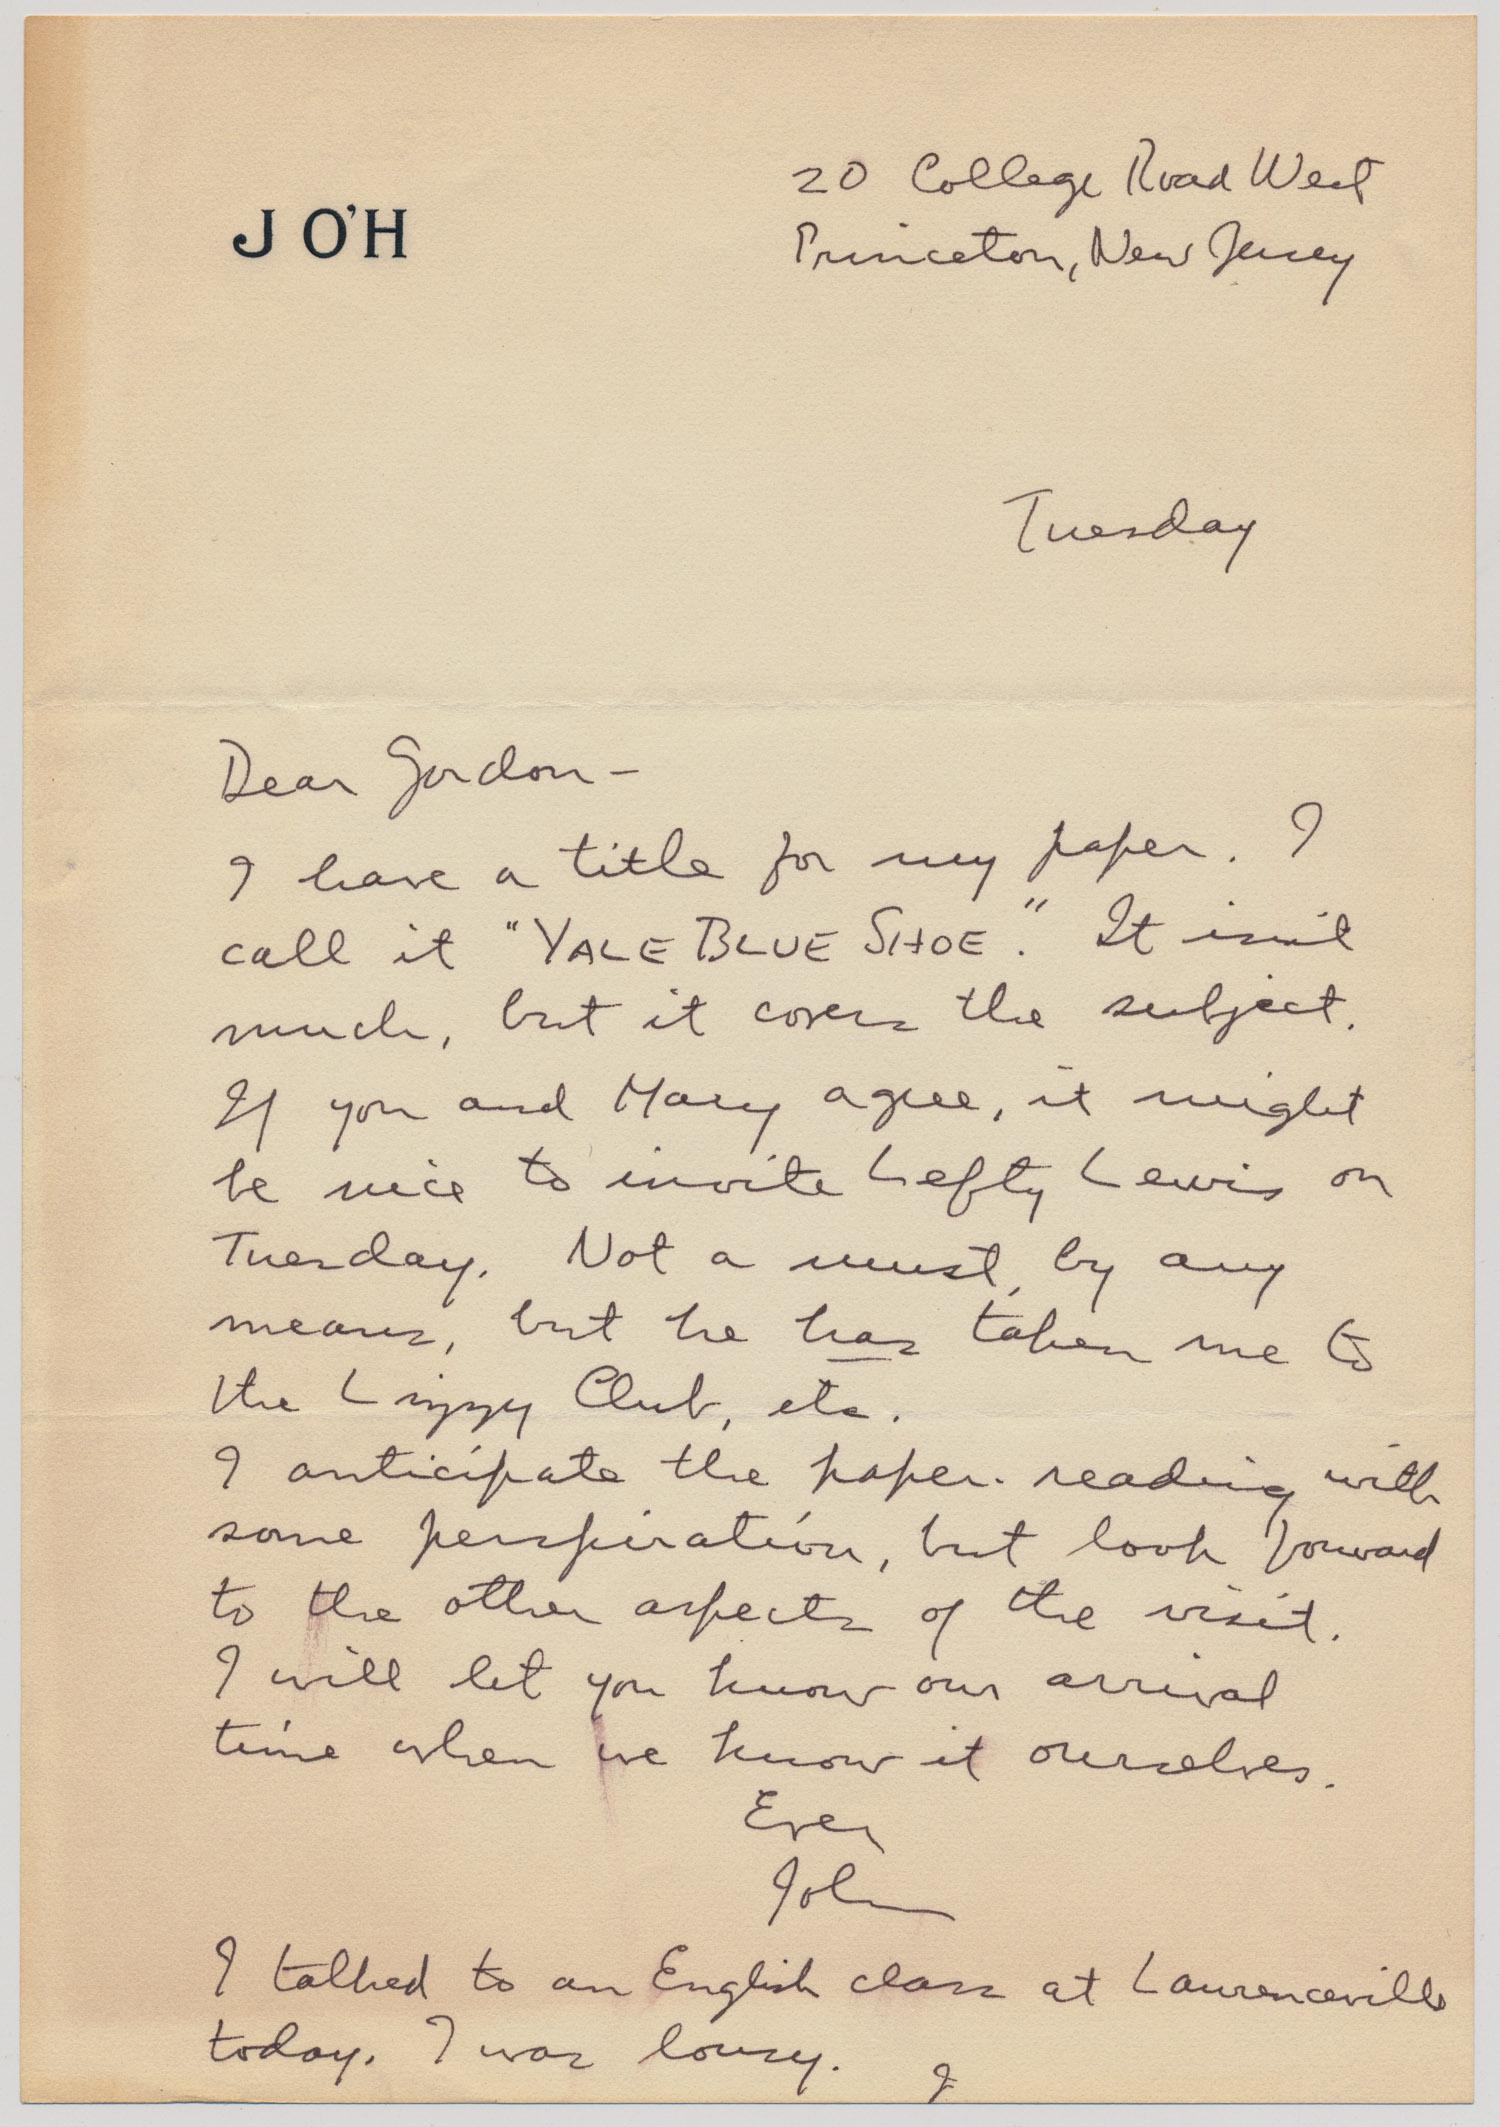 J O'H
20 College Road West
Princeton, New Jersey
Tuesday
Dear Gordon —
I have a title for my paper. I
call it "YALE BLUE SHOE." It isn't
much, but it covers the subject.
If you and Mary agree, it might
be nice to invite Lefty Lewis on
Tuesday. Not a must, by any
means, but he has taken me to
the Lizzy Club, etc.
I anticipate the paper-reading with
some perspiration, but look forward
to the other aspects of the visit.
I will let you know our arrival
time when we know it ourselves.
Ever
John
I talked to an English class at Lawrenceville
today. I was lousy. J